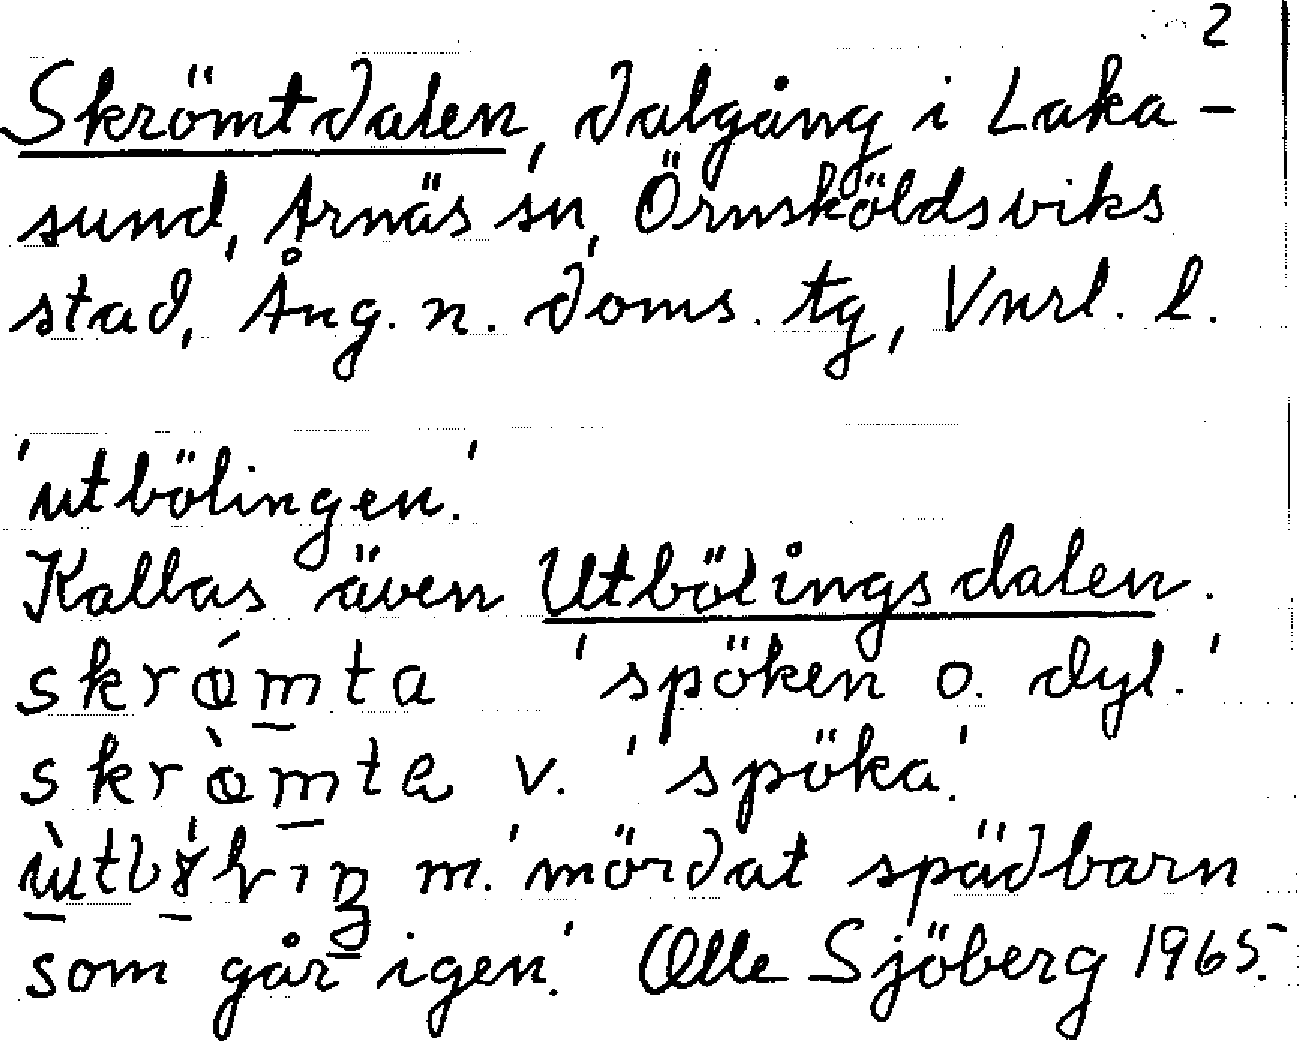 2
Skrömtdalen, dalgång i Laka-
sund, Arnäs sn, Örnsköldsviks
stad, Ång. n. doms. tg, Vnrl. l.
'utbölingen.'
Kallas även Utbölingsdalen.
skrǿmta 'spöken o. dyl.'
skrø̀mta v. 'spöka.'
m. 'mördat spädbarn
som går igen.' Olle Sjöberg 1965.